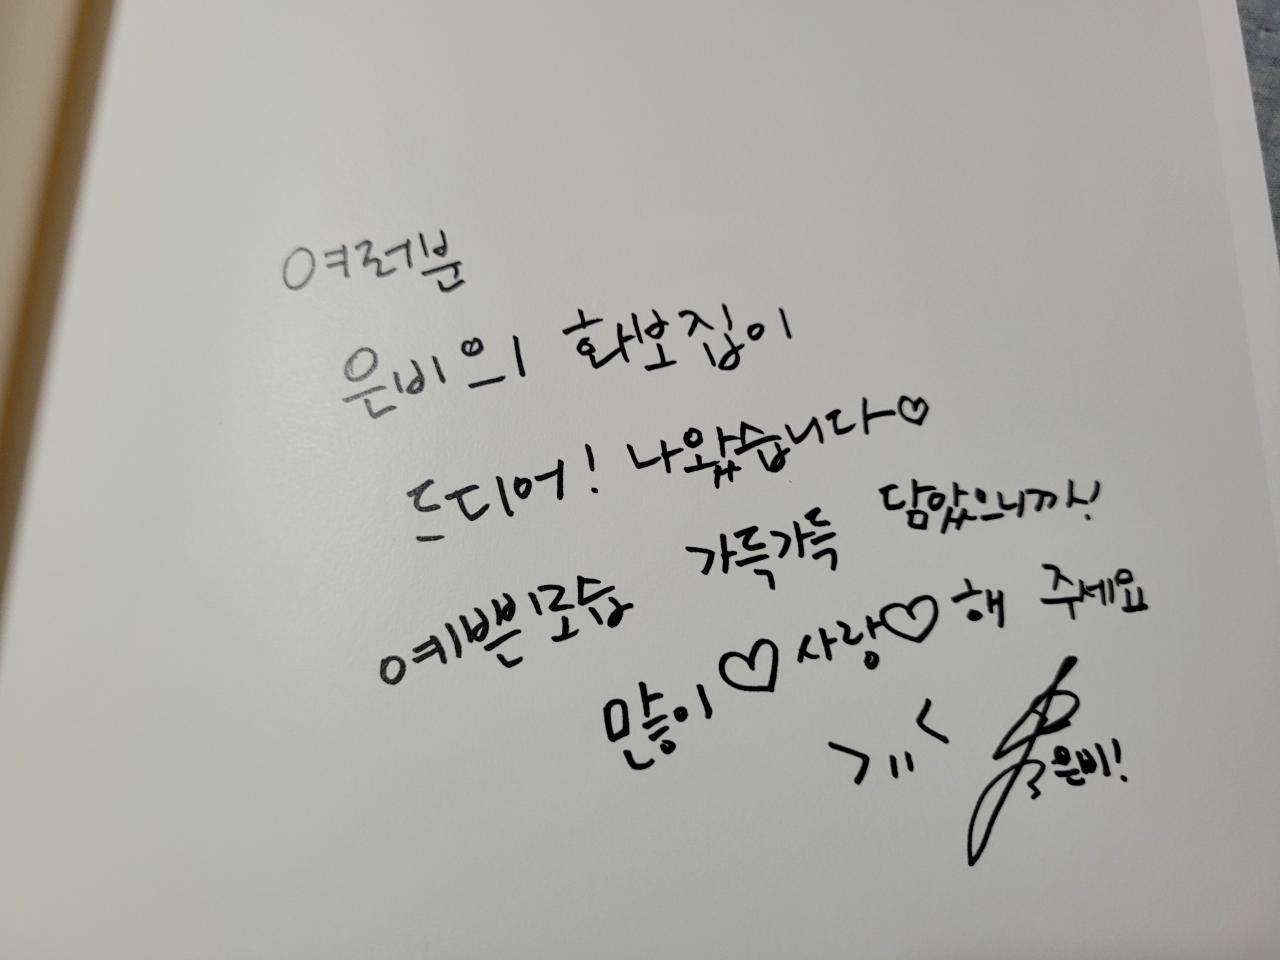 여러분
은비의 화보집이
드디어! 나왔습니다♡
예쁜모습 가득가득 담았으니까!
많이♡사랑♡해 주세요
>〃<
은비!